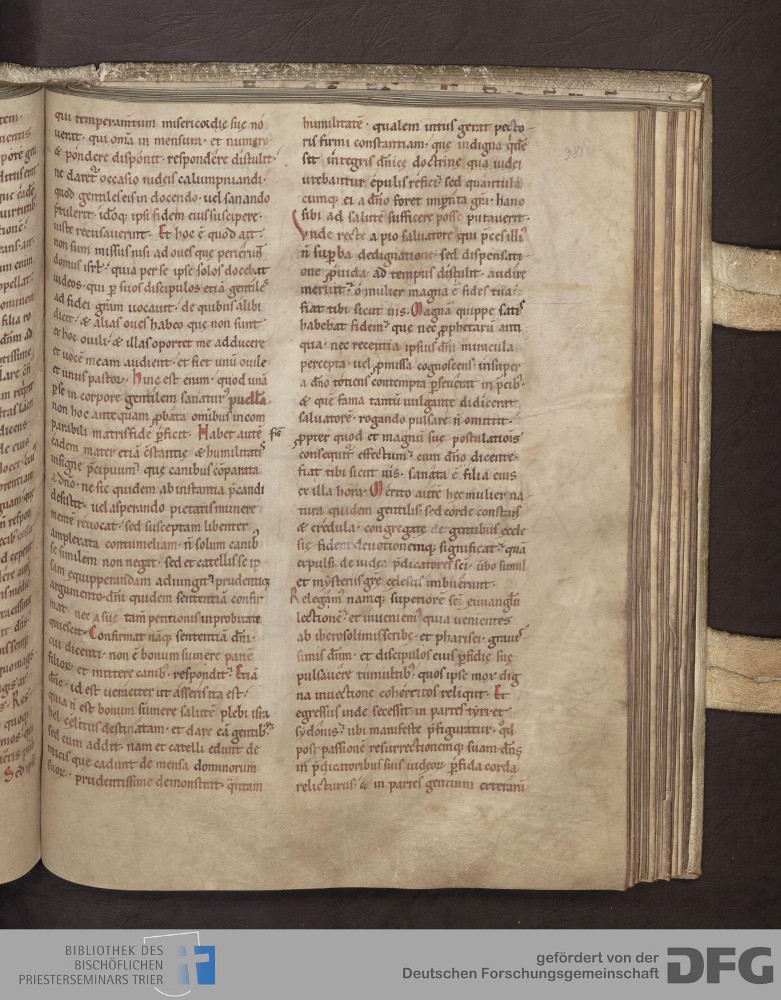 qui temperantum misericordie sue nō
uerat · qui om̄a in mensura · et numero
& pondere disponit · respondere distulit ·
ne daret̉ occasio iudeis calumpniandi ·
quod gentiles eis in docendo · uel sanando
p̄tulerit · idoq; ipsi fidem eius suscipere ·
iuste recusauerint · Et hoc ē quod ait ·
non sum missus nisi ad oues que perierūt
domus isrl̄ · quia per se ipse solos docebat
iudeos · qui p suos discipulos etiā gentiles
ad fidei gr̄am uocauit · de quibus alibi
dicit · & alias oues habeo que non sunt
ex hoc ouili · & illas oportet me adducere
et uocē meam audient · et fiet unū ouile ·
et unus pastor · Hinc est enim · quod unā
p̄se in corpore gentilem sanatur̉ puella ·
non hoc ante quam p̄bata om̄ibus incom
parabili matris fide p̄ficit · Habet autē
eadem mater etiā c̄stantię & humilitatis
insigne p̄cipuum · que canibus cōparata
a dn̄o · ne sic quidem ab instantia p̄candi
desistit · uel asperando pietatis munere
mentē reuocat · sed susceptam libenter
amplexata contumeliam · n̄ solum canib;
se similem non negat · sed et catellis se ip
sam equipperandam adiungit · prudentiq;
argumento · dn̄i quidem sententiā confir
mat · nec a sue tam̄ petitionis inprobitate
quiescit · Confirmat nāq; sententiā dn̄i ·
cui dicenti · non ē bonum sumere panē
filiorū · et mittere canib; · respondit · Etiā
dn̄e · id est uemetter ut asseris ita est ·
quia n̄ est bonum sumere salutē plebi isrl̄
uel celitus destinatam · et dare eā gentib; ·
sed cum addit · nam et catelli edunt de
micis que cadunt de mensa dominorum
suorū · prudentissime demonstrat · q̄ntam
humilitatē · qualem intus gerat pecto
ris firmi constantiam · que indigna q̄dē
sit integris dn̄ice doctrine qua iudei
utebantur epulis refici · sed quantula
cumq; ei a dn̄o foret imp̄tita gr̄a · hanc
sibi ad salutē sufficere posse putauerit ·
Vnde recte a pio saluatore qui p̄ces illi
n̄ sup̄ba dedignatione · sed dispensati
one p̄uida ad tempus distulit · audire
meruit · o mulier magna ē fides tua ·
fiat tibi sicut uis · Magnā quippe satis
habebat fidem · que nec p̄phetarū anti
qua · nec recentia ipsius dn̄i miracula
percepta · uel p̄missa cognoscens · insuper
a dn̄o totiens contempta p̄seuerat in p̄cib; ·
& que fama tantū uulgante didicerat
saluatorē · rogando pulsare n̄ omittit ·
p̄pter quod et magnū sue postulatiōis
consequit̉ effectum · cum dn̄o dicente ·
fiat tibi sicut uis · sanata ē filia eius
ex illa hora · Merito autē hec mulier na
tura quidem gentilis · sed corde constans
& credula · congregatę de gentibus eccle
sie fidem deuotionemq; significat · qua
expulsi de iudea p̄dicatores sc̄i · ubo simul
et mysteriis gr̄e celestis imbuerunt ·
Relegam̉ namq; superiorē sc̄i euuanglii
lectionē · et inueniem̉ quia uenientes
ab iherosolimis scribe · et pharisei · graui
simis dn̄m · et discipulos eius p̄fidię sue
pulsauere tumultib; · quos ipse mox dig
na inuectione cohercitos reliquit · Et
egressus inde secessit in partes tyri · et
sydonis · ubi manifeste p̄figuratur · qd̄
post passionē resurrectionemq; suam · dn̄s
in p̄dicatoribus suis iudeorū p̄fida corda
relicturus & in partes gentium exterarū
BIBLIOTHEK DES
BISCHÖFLICHEN
PRIESTERSEMINARS TRIER
gefördert von der
Deutschen Forschungsgemeinschaft
DFG